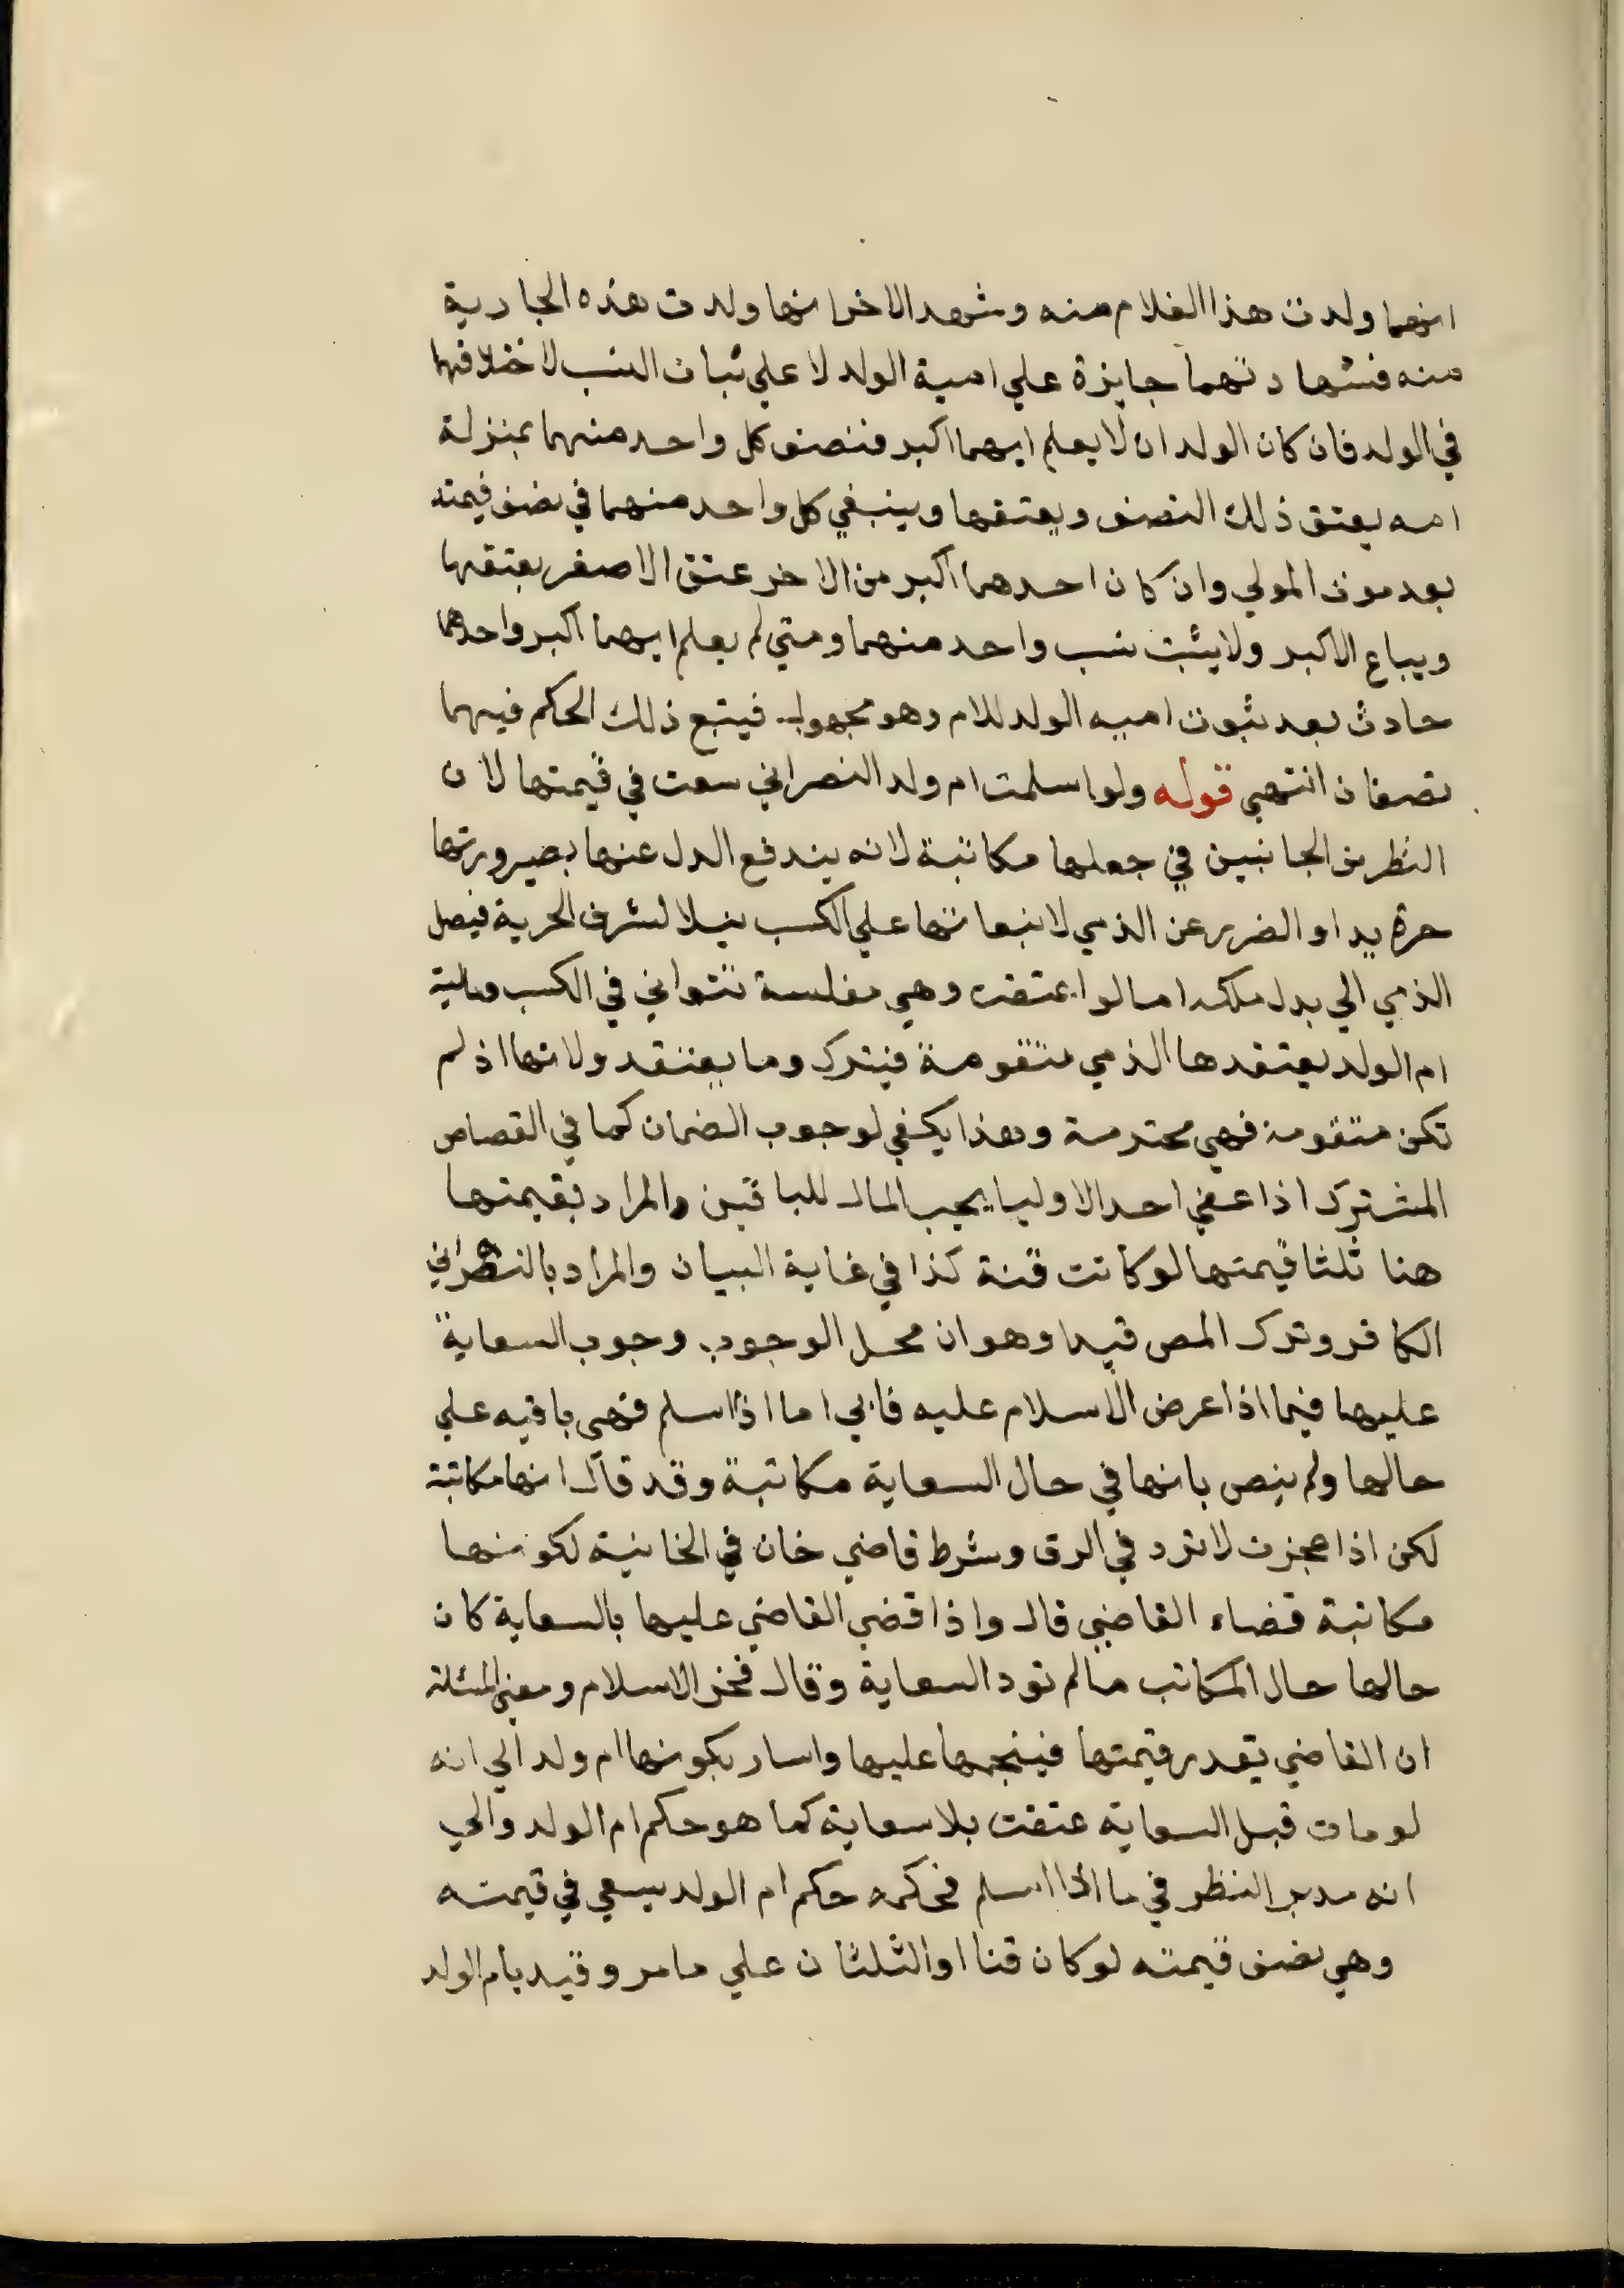 انهما ولدت هذا الغلام منه وشهد الاخر انها ولدت هذه الجارية
منه فشهادتهما جايزة علي امية الولد لا علي ثبات النسب لاختلافهما
في الولد فان كان الولدان لا يعلم ايهما اكبر فنصف كل واحد منهما بمنزلة
امه يعتق ذلك النصف ويعتقها وينبغي كل واحد منهما في نصف قيمته
بعد موت المولي وان كان احدهما اكبر من الاخر عتق الاصغر بعتقها
ويباع الاكبر ولا يثبت نسب واحد منهما ومتي لم يعلم ايهما اكبر واحدهما
حادث بعد ثبوت اميه الولد للام وهو مجهول فيتبع ذلك الحكم فيهما
نصفان انتهي قوله ولو اسلمت ام ولد النصراني سعت في قيمتها لان
النظر من الجانبين في جعلها مكاتبة لانه يندفع الدل عنها بصيرورتها
حرة يدا والضرر عن الذمي لانبعاثها علي الكسب نيلا لشرف الحرية فيصل
الذمي الي بدل ملكه اما لو اعتقت وهي مفلسة تتواني في الكسب ومالية
ام الولد يعتقدها الذمي متقومة فيترك وما يعتقد ولانها اذ لم
تكن متقومة فهي محترمة وهذا يكفي لوجوب الضمان كما في القصاص
المشترك اذا عفي احد الاوليا يجب المال للباقين والمراد بقيمتها
هنا ثلثا قيمتها لو كانت قنة كذا في غاية البيان والمراد بالنصراني
الكافر وترك المص قيدا وهو ان محل الوجوب وجوب السعاية
عليها فيما اذا عرض الاسلام عليه فابي اما اذا اسلم فهي باقيه علي
حالها ولم ينص بانها في حال السعاية مكاتبة وقد قال انها مكاتبة
لكن اذا عجزت لا ترد في الرق وشرط قاضي خان في الخانية لكونها
مكاتبة قضاء القاضي قال واذا قضي القاضي عليها بالسعاية كان
حالها حال المكاتب مالم تود السعاية وقال فخر الاسلام ومعني المسئلة
ان القاضي يقدر قيمتها فينجمها عليها واسار بكونها ام ولد الي انه
لو مات قبل السعاية عتقت بلا سعاية كما هو حكم ام الولد والي
انه مدبر النظر في ما اذا اسلم فحكمه حكم ام الولد يسعي في قيمته
وهي نصف قيمته لو كان قنا او الثلثان علي مامر وقيد بام الولد